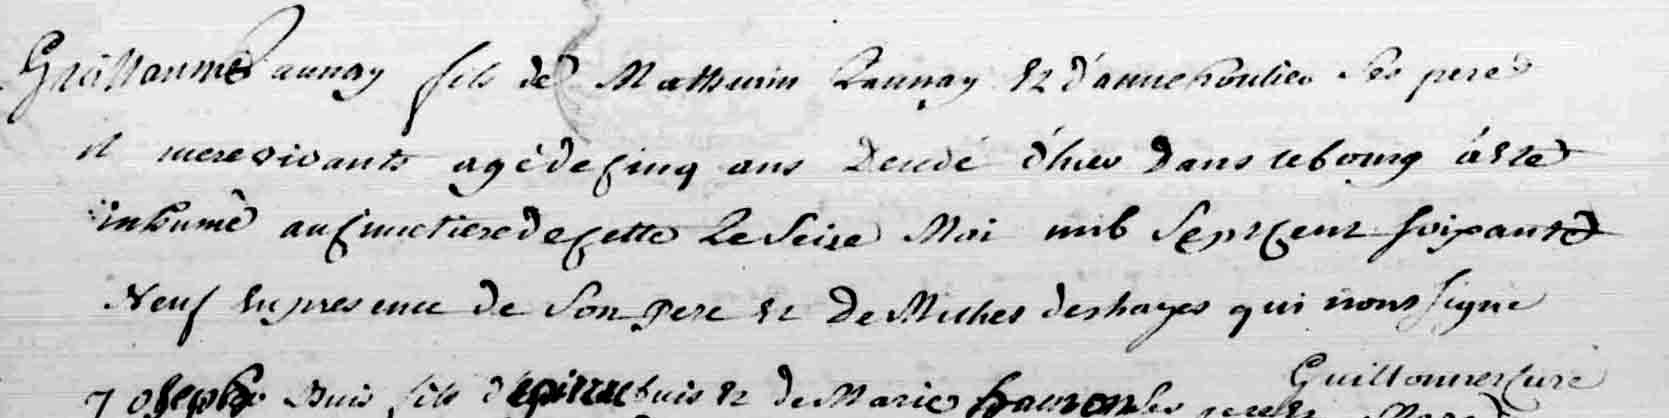 Guillaume Launay fils de Mathurin Launay et d'anne houlier Ses pere
et mere vivants agé de cinq ans Decedé d'hier dans le bourg a été
inhumé au cimetiere de cette Le Seize Mai mil Sept cent soixante
Neuf En presence de Son pere et De Michel deshayes qui n'ont signe
Guillonner curé
Joseph Buis fils d' pierre buis et de Marie hamon Ses pere et